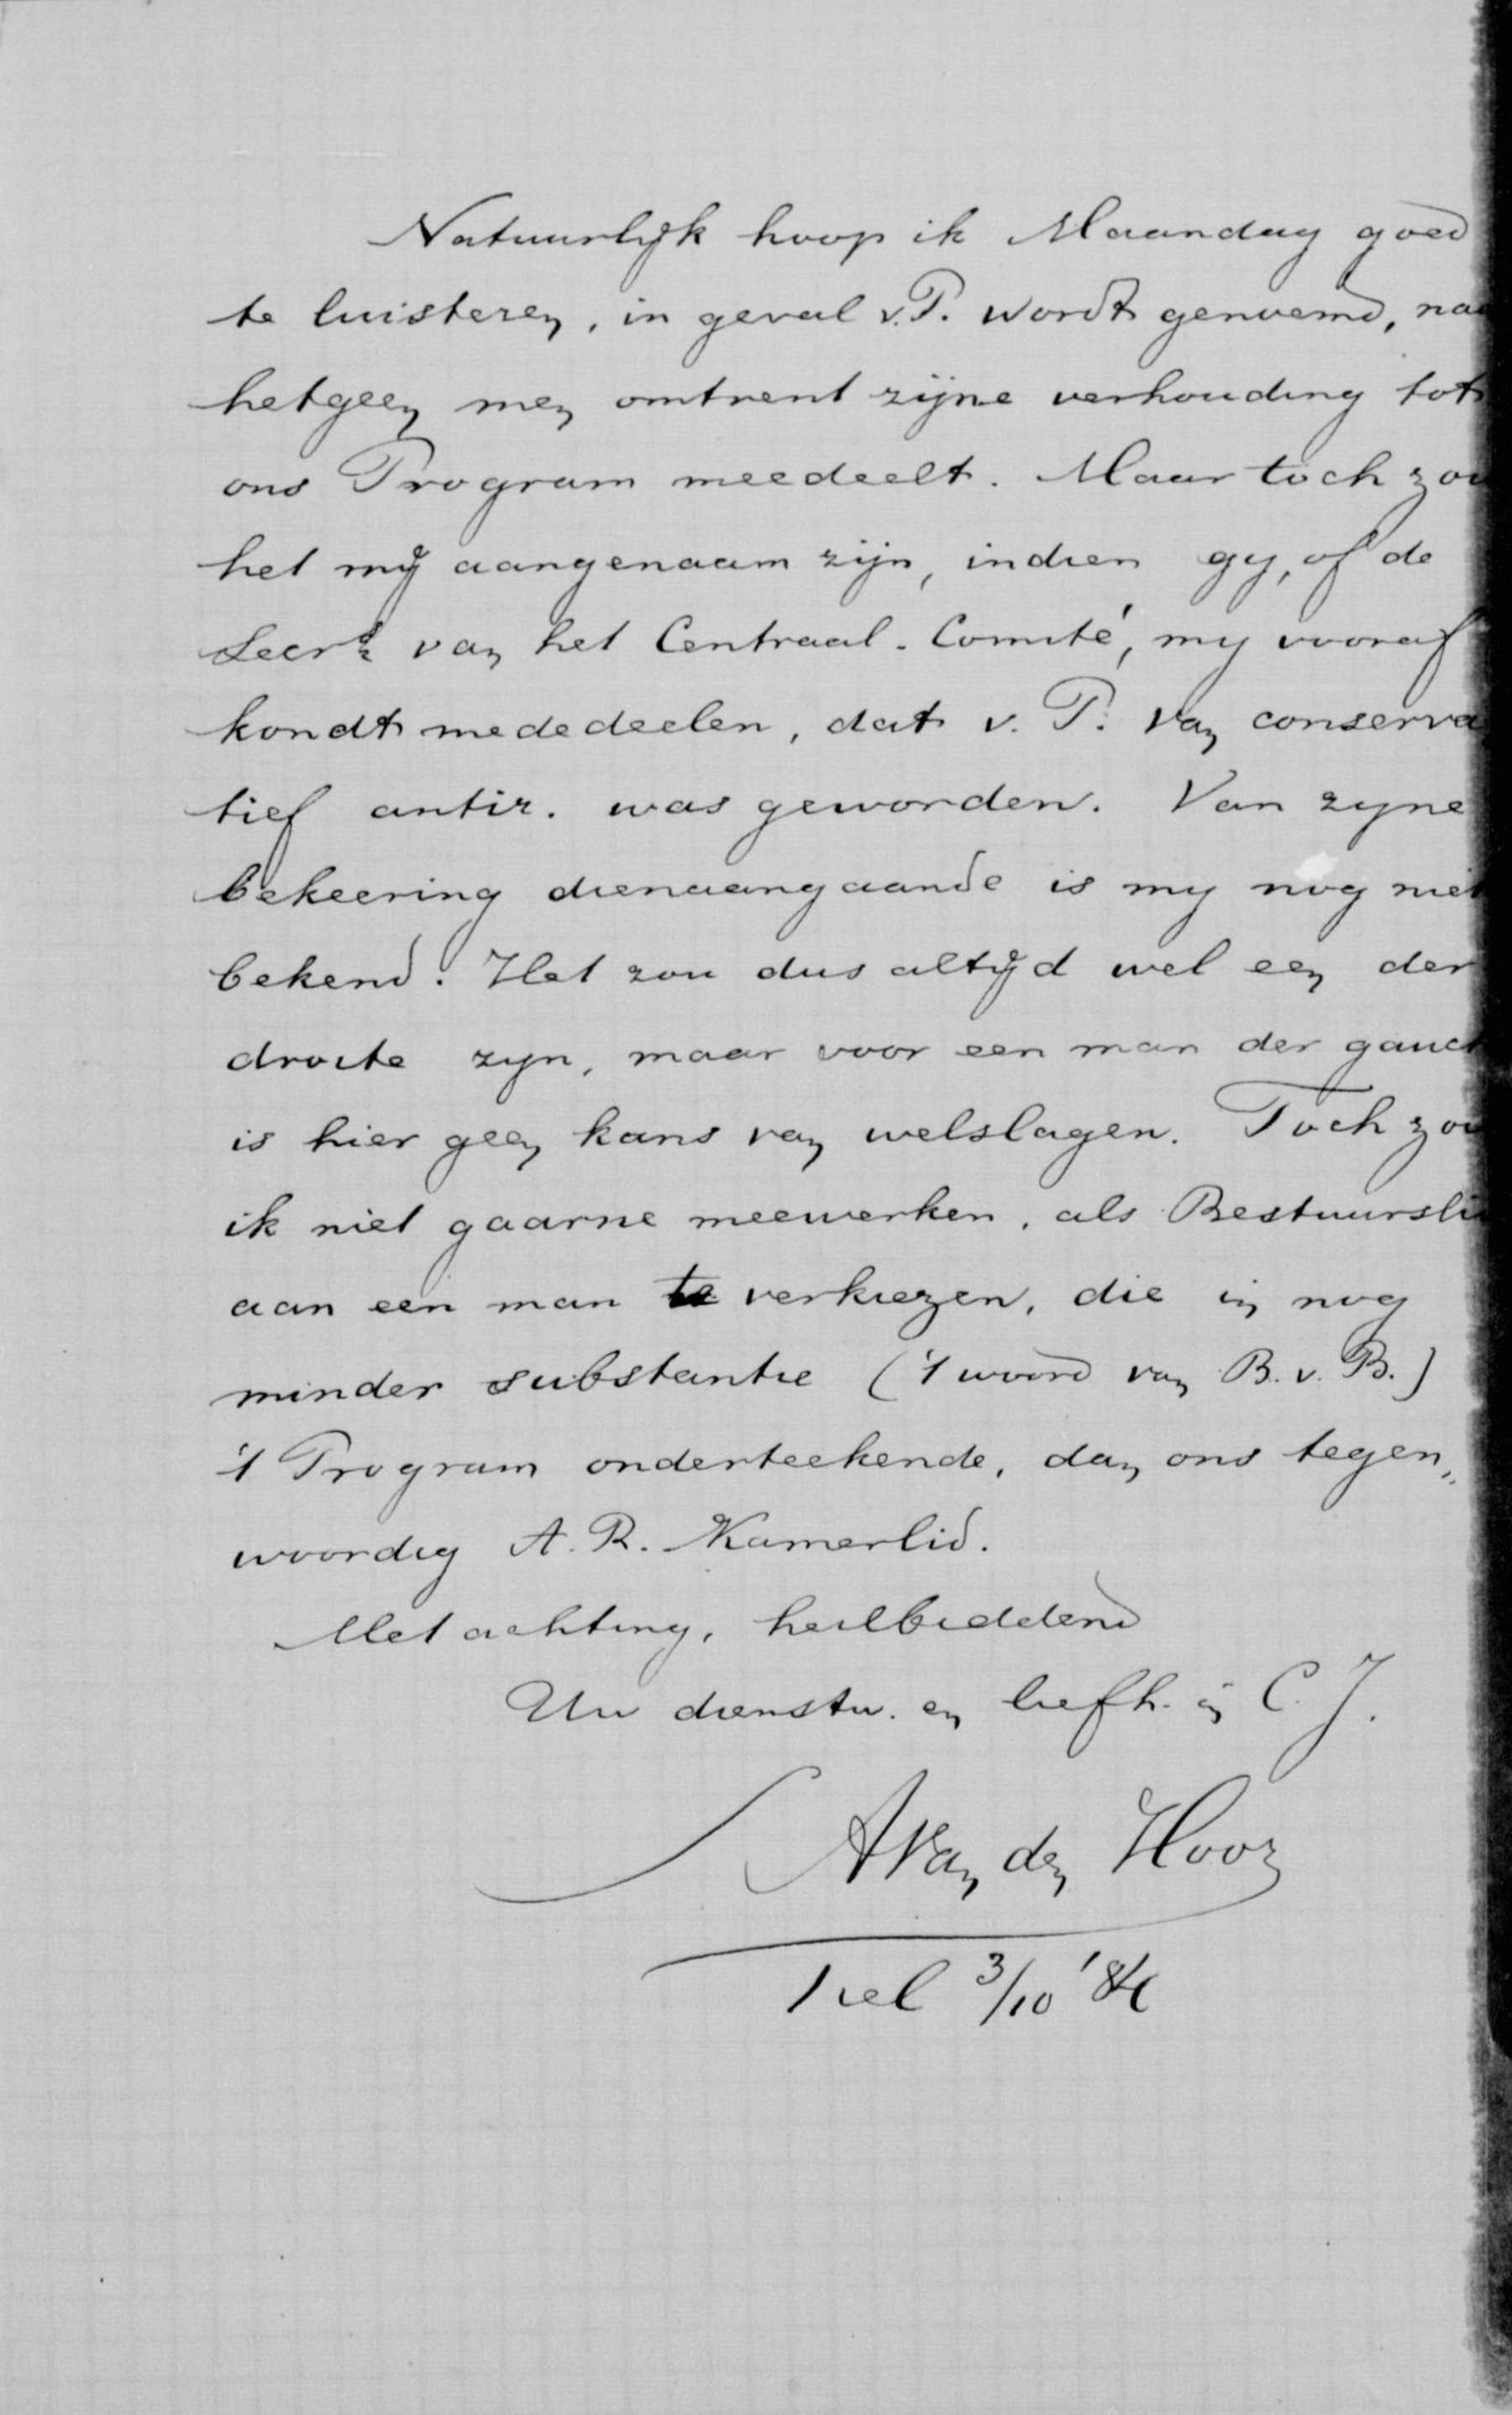 Natuurlijk hoop ik Maandag goed
te luisteren, in geval v. P. wordt genoemd, naa
hetgeen men omtrent zijne verhouding tot
ons Program meedeelt. Maar toch zou
het mij aangenaam zijn, indien gy, of de
van het Centraal-Comité, my vooraf
kondt mededeelen, dat v. P. van conserva
tief antir. was geworden. Van zyne
bekeering dienaangaande is my nog niet
bekend. Het zou dus altijd wel een der
droite zyn, maar voor een man der gauch
is hier geen kans van welslagen. Toch zou
ik niet gaarne meewerken, als Bestuursli
aan een man te verkiezen, die in nog
minder substantie ('t woord van B. v. B.)
't Program onderteekende, dan ons tegen„
woordig A. R. Kamerlid.
Met achting, heilbiddend
Uw dienstw. en liefh. in C. J.
A Van den Hoor
Tiel 3/10 '84